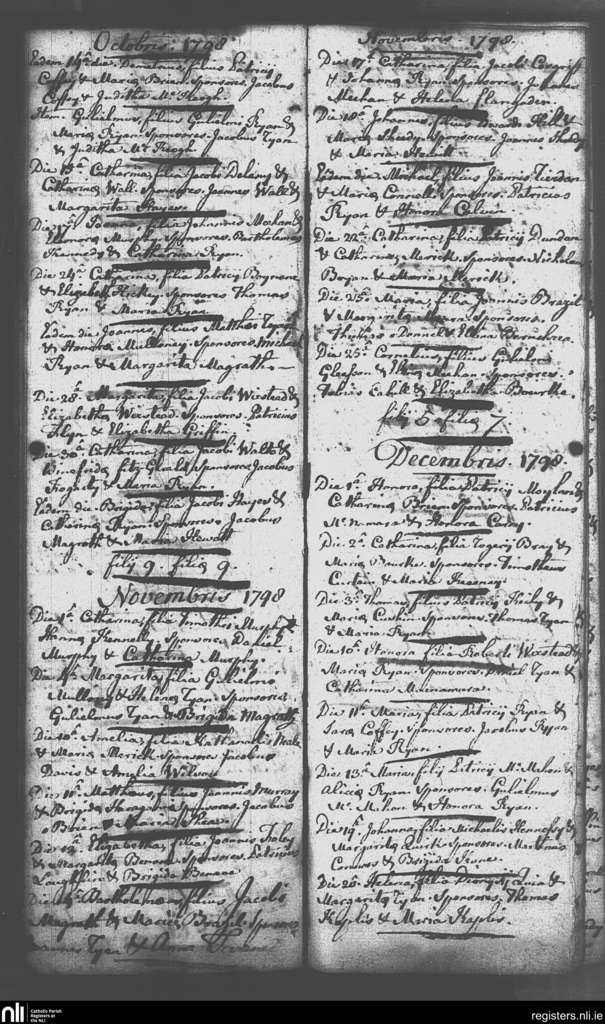 Octobris. 1798
Eadem 14ª die. Demetrius, filius Patricij
Coffey & Maria Brian. Sponsores, Jacobus
Coffey & Juditha Mc Keogh.
Item. Gulielmus, filius Gulielmi Ryan &
Maria Ryan. Sponsores. Jacobus Ryan
& Juditha Mc Keogh.
Die 15ª Catharina, filia Jacobi Delaney &
Catharina Wall. Sponsores. Joannes Walsh &
Margarita Hayes.
Die 17ª filius Johannis Mahan &
Elenora Murphy. Sponsores. Bartholomeus
Kennedy & Catharina Ryan.
Die 24ª Catharina, filia Patricij
& Elizabeth Hickey. Sponsores Thomas
Ryan & Maria Ryan.
Eadem die Joannes, filius Matthei
& Honora. Sponsores. Michael
Ryan & Margarita Magrath.
Die 28ª Margarita, filia Jacobi Weirstead &
Elizabetha Weirstead. Sponsores. Patricius
Flyn & Elizabetha Griffin.
Die 30ª Catharina filia Jacobi Walsh &
Sponsores Jacobus
Fogarty & Maria Ryan.
Eadem die. Brigida, filia Jacobi Hayes &
Catharina Ryan. Sponsores. Jacobus
Magrath & Maria Hewitt
filij 9. filiæ 9.
Novembris 1798
Die 1ª Catharina, filia Timothei Murphy &
Hanna Kennelly. Sponsores Daniel
Murphy & Catharina Murphy.
Die 4ª Margarita, filia Gulielmi
Mullony & Helena Ryan. Sponsores
Gulielmus Ryan & Brigida Magrath
Die 10ª Amelia, filia Nathanaelis
& Maria Merick. Sponsores Jacobus
Davis & Amelia Wilson
Die 11ª Mattheus, filius Joannis Murray
& Brigida. Sponsores. Jacobus
Brien & Maria Shea.
Die 12ª Elizabetha, filia Joannis Foley
& Margarita Benone. Sponsores Patricius
Laughlin & Brigida Benone.
Die Bartholomeus, filius Jacobi
Magrath & Maria. Sponsores
Joannes Ryan & Anna
Novembris. 1798.
Die 17ª Catharina, filia Jacobi Cosgriff
& Johanna Ryan. Sponsores. Johannes
Meehan & Helena Flannaden.
Die 18ª Johannes, filius &
Maria Sheedy. Sponsores Joannes Sheedy
& Maria Hewitt.
Eadem die. Michael, filius Joannis Tierdan
& Maria Connell. Sponsores. Patricius
Ryan & Honora
Die 22ª Catharina, filia Patricij Dundon
& Catharina Merick. Sponsores. Nicholaus
Bryan & Maria Merick.
Die. 25ª Maria, filia Joannis Brazil
& Margarita. Sponsores.
Daniel & Elena
Die 25ª Cornelius, filius Gulielmi
Gleeson & Meehan. Sponsores.
Tobias Cahill & Elizabetha Bourke.
filij 5 filiæ 7
Decembris. 1798
Die 1ª Honora, filia Patricij Moylan &
Catharina Breen. Sponsores. Patricius
Mc Namara & Honora Casey.
Die. 2ª Catharina, filia Rogerij Bray &
Maria Burke. Sponsores. Timotheus
Curtain & Maria Heaney.
Die 3ª Thomas, filius Patricij Healy &
Maria Cushin. Sponsores. Thomas Ryan
& Maria Ryan.
Die 10ª Honora filia Roberti Weirstead &
Maria Ryan. Sponsores. Daniel Ryan &
Catharina Macnamara.
Die 11ª Maria, filia Patricij Ryan &
Sara Coffey. Sponsores. Jacobus Ryan
& Maria Ryan.
Die 13ª filij Patricij Mc Mahon &
Alicia Ryan. Sponsores. Gulielmus
Mc Mahon & Honora Ryan.
Die 19ª Johanna, filia Michaelis Hennessy &
Margarita Quirk. Sponsores. Martinus
Connors & Brigida
Die 20ª Helena, filia Dionysij &
Margarita Ryan. Sponsores, Thomas
Kaplis & Maria Kaplis.
nli
Catholic Parish
Registers at
the NLI
registers.nli.ie